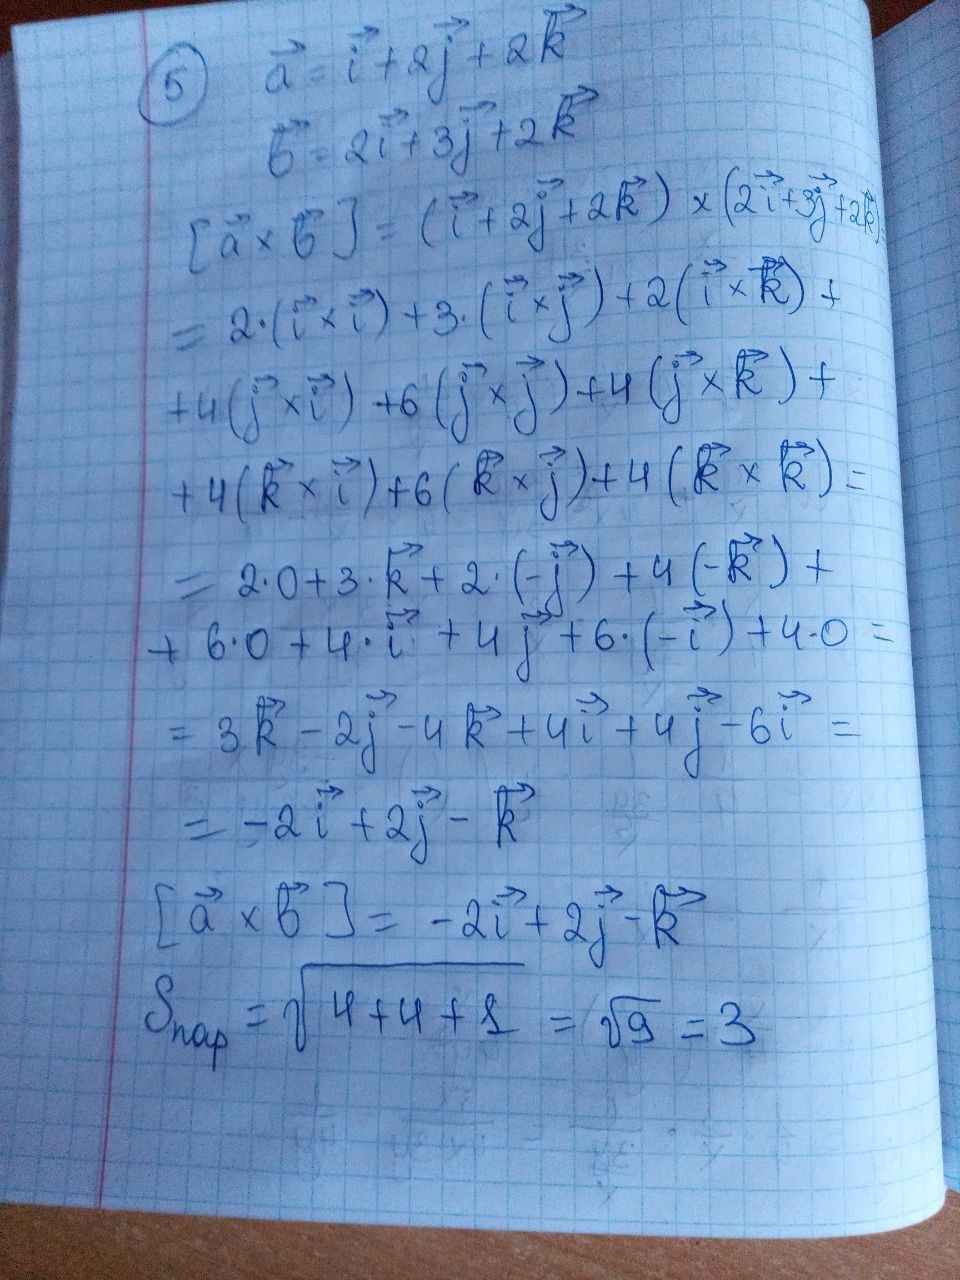 5 a⃗ = i⃗ + 2j⃗ + 2k⃗
b⃗ = 2i⃗ + 3j⃗ + 2k⃗
[a⃗ × b⃗] = (i⃗ + 2j⃗ + 2k⃗) × (2i⃗ + 3j⃗ + 2k⃗) =
= 2·(i⃗ × i⃗) + 3·(i⃗ × j⃗) + 2(i⃗ × k⃗) +
+ 4(j⃗ × i⃗) + 6(j⃗ × j⃗) + 4(j⃗ × k⃗) +
+ 4(k⃗ × i⃗) + 6(k⃗ × j⃗) + 4(k⃗ × k⃗) =
= 2·0 + 3·k⃗ + 2·(-j⃗) + 4(-k⃗) +
+ 6·0 + 4·i⃗ + 4j⃗ + 6·(-i⃗) + 4·0 =
= 3k⃗ - 2j⃗ - 4k⃗ + 4i⃗ + 4j⃗ - 6i⃗ =
= -2i⃗ + 2j⃗ - k⃗
[a⃗ × b⃗] = -2i⃗ + 2j⃗ - k⃗
Sпар = √(4+4+1) = √9 = 3